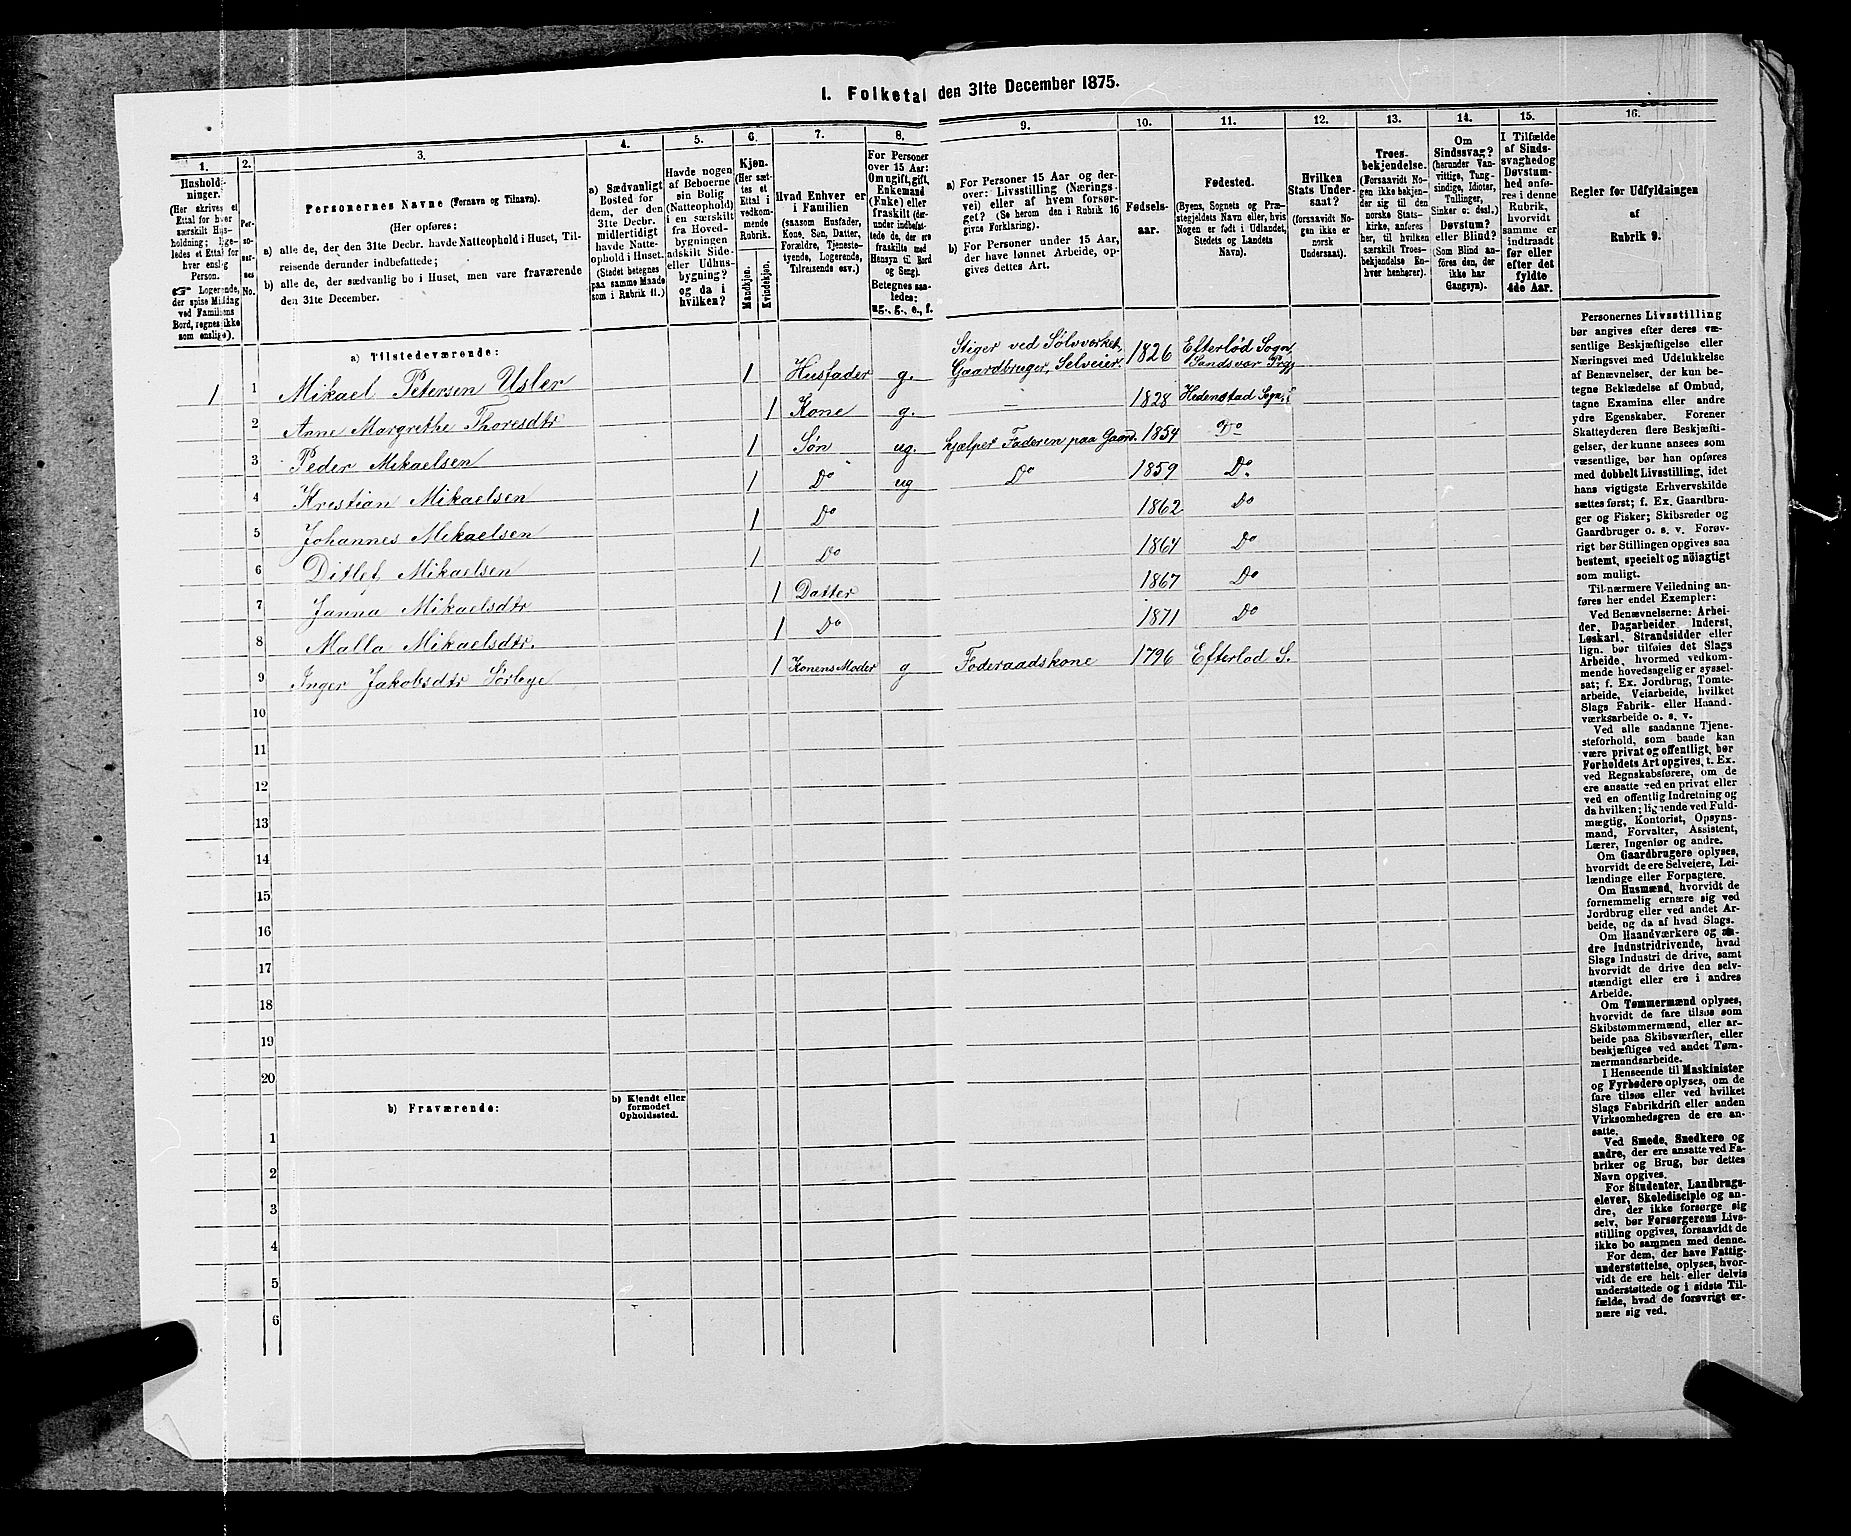 I. Folketal den 31te December 1875.
1.
Hushold-
ninger.
(Her skrives et
Ettal for hver
særskilt Hus-
holdning; lige-
ledes et Ettal for
hver enslig
Person.
☞ Logerende,
der spise Middag
ved Familiens
Bord, regnes ikke
som enslige).
2.
Per-
so-
ner-
nes
No.
3.
Personernes Navne (Fornavn og Tilnavn).
(Her opføres:
a) alle de, der den 31te Decbr. havde Natteophold i Huset, Til-
reisende derunder indbefattede;
b) alle de, der sædvanlig bo i Huset, men vare fraværende
den 31te December.
4.
a) Sædvanligt
Bosted for
dem, der den
31te Decbr.
midlertidigt
havde Natte-
ophold i Huset.
(Stedet betegnes
paa samme Maade
som i Rubrik 11.)
5.
Havde nogen
af Beboerne
sin Bolig
(Natteophold)
i en særskilt
fra Hoved-
bygningen
adskilt Side-
eller Udhus-
bygning?
og da i
hvilken?
6.
Kjøn.
(Her sæt-
tes et
Ettal i
vedkom-
mende
Rubrik.
Mandkjøn.
Kvindekjøn.
7.
Hvad Enhver er
i Familien
(saasom Husfader,
Kone, Søn, Datter,
Forældre, Tjeneste-
tyende, Logerende,
Tilreisende osv.)
8.
For Personer
over 15 Aar:
Om ugift, gift,
Enkemand
(Enke) eller
fraskilt (der-
under indbefat-
tede de, der ere
fraskilte med
Hensyn til Bord
og Seng).
Betegnes saa-
ledes:
ug., g., e., f.
9.
a) For Personer 15 Aar og der-
over: Livsstilling (Nærings-
vei) eller af hvem forsør-
get? (Se herom den i Rubrik 16
givne Forklaring).
b) For Personer under 15 Aar,
der have lønnet Arbeide, op-
gives dettes Art.
10.
Fødsels-
aar.
11.
Fødested.
(Byens, Sognets og Præ-
stegjeldets Navn eller, hvis
Nogen er født i Udlandet,
Stedets og Landets
Navn).
12.
Hvilken
Stats Under-
saat?
(forsaavidt No-
gen ikke er
norsk
Undersaat).
13.
Troes-
bekjendelse.
(Forsaavidt No-
gen ikke bekjen-
der sig til den
norske Stats-
kirke, anføres
her, til hvilken
særskilt Troes-
bekjendelse En-
hver henhører).
14.
Om
Sindssvag?
(herunder Van-
vittige, Tung-
sindige, Idioter,
Tullinger,
Sinker o: desl.)
Døvstum?
eller Blind?
(Som Blind an-
føres den, der
ikke har
Gangsyn).
15.
I Tilfælde
af Sinds-
svaghed og
Døvstum-
hed anfø-
res i denne
Rubrik,
hvorvidt
samme er
indtraadt
før eller
efter det
fyldte
4de Aar.
16.
Regler for Udfyldningen
af
Rubrik 9.
a) Tilstedeværende:
1 1 Mikael Petersen Usler 1 Husfader g. Stiger ved Sølvværket, Gaardbruger, Selveier. 1826 Efterlød Sogn, Sandsvær Prgj
2 Anne Margrethe Thoresdtr 1 Kone g. — 1828 Hedenstad Sogn,
3 Peder Mikaelsen 1 Søn ug. hjælper Faderen paa Gaard. 1854 Do
4 Kristian Mikaelsen 1 Do ug Do 1859 Do
5 Johannes Mikaelsen 1 Do 1862 Do
6 Ditlef Mikaelsen 1 Do 1864 Do
7 Janna Mikaelsdtr 1 Datter 1867 Do
8 Malla Mikaelsdtr. 1 Do 1871 Do
9 Inger Jakobsdtr Sørbye 1 Konens Moder g Føderaadskone 1796 Efterlød S.
10
11
12
13
14
15
16
17
18
19
20
b) Fraværende:
b) Kjendt eller
formodet
Opholdssted.
1
2
3
4
5
6
Personernes Livsstilling
bør angives efter deres væ-
sentlige Beskjæftigelse eller
Næringsvei med Udelukkelse
af Benævnelser, der kun be-
tegne Beklædelse af Ombud,
tagne Examina eller andre
ydre Egenskaber. Forener
Skatteyderen flere Beskjæfti-
gelser, der kunne ansees som
væsentlige, bør han opføres
med dobbelt Livsstilling, idet
hans vigtigste Erhvervskilde
sættes først; f. Ex. Gaardbru-
ger og Fisker; Skibsreder og
Gaardbruger o. s. v. Forøv-
rigt bør Stillingen opgives saa
bestemt, specielt og nøiagtigt
som muligt.
Til nærmere Veiledning an-
føres her endel Exempler:
Ved Benævnelserne: Arbei-
der, Dagarbeider, Inderst,
Løskarl, Strandsidder eller
lign. bør tilføies det Slags
Arbeide, hvormed vedkom-
mende hovedsagelig er syssel-
sat; f. Ex. Jordbrug, Tomte-
arbeide, Veiarbeide, hvilket
Slags Fabrik- eller Haand-
værksarbeide o. s. v.
Ved alle saadanne Tjene-
steforhold, som baade kan
være privat og offentligt, bør
Forholdets Art opgives, t. Ex.
ved Regnskabsførere, om de
ere ansatte ved en privat eller
ved en offentlig Indretning og
da hvilken; lignende ved Fuld-
mægtig, Kontorist, Opsyns-
mand, Forvalter, Assistent,
Lærer, Ingeniør og andre.
Om Gaardbrugere oplyses,
hvorvidt de ere Selveiere, Lei-
lændinge eller Forpagtere.
Om Husmænd, hvorvidt de
fornemmelig ernære sig ved
Jordbrug eller ved andet Ar-
beide, og da af hvad Slags.
Om Haandværkere og an-
dre Industridrivende, hvad
Slags Industri de drive, samt
hvorvidt de drive den selv-
stændigt eller ere i andres
Arbeide.
Om Tømmermænd oplyses,
hvorvidt de fare tilsøs som
Skibstømmermænd, eller ar-
beide paa Skibsværfter, eller
beskjæftiges ved andet Tøm-
mermandsarbeide.
I Henseende til Maskinister
og Fyrbødere oplyses, om de
fare tilsøs eller ved hvilket
Slags Fabrikdrift eller anden
Virksomhedsgren de ere an-
satte.
Ved Smede, Snedkere og
andre, der ere ansatte ved Fa-
briker og Brug, bør dettes
Navn opgives.
For Studenter, Landbrugs-
elever, Skoledisciple og an-
dre, der ikke forsørge sig
selv, bør Forsørgerens Livs-
stilling opgives, forsaavidt de
ikke bo sammen med denne.
For dem, der have Fattig-
understøttelse, oplyses, hvor-
vidt de ere helt eller delvis
understøttede og i sidste Til-
fælde, hvad de forøvrigt er-
nære sig ved.